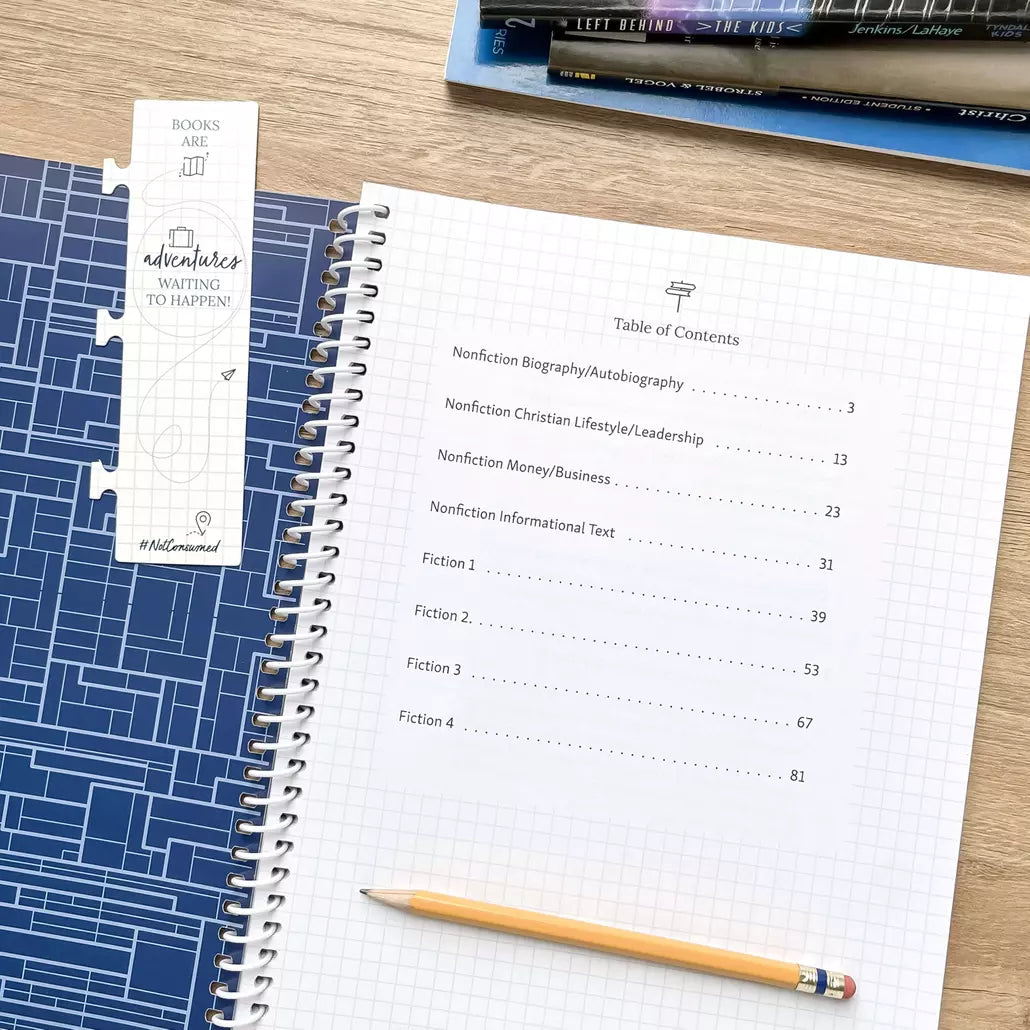 LEFT BEHIND >THE KIDS<
Jenkins/LaHaye
TYNDALE KIDS
STROBEL & VOGEL
STUDENT EDITION •
Christ
BOOKS
ARE
adventures
WAITING
TO HAPPEN!
#NotConsumed
Table of Contents
Nonfiction Biography/Autobiography . . . . . . . . . . . . . . . 3
Nonfiction Christian Lifestyle/Leadership . . . . . . . . . . . 13
Nonfiction Money/Business . . . . . . . . . . . . . . . . . . . . 23
Nonfiction Informational Text . . . . . . . . . . . . . . . . . . 31
Fiction 1 . . . . . . . . . . . . . . . . . . . . . . . . . . . . . . 39
Fiction 2. . . . . . . . . . . . . . . . . . . . . . . . . . . . . . . 53
Fiction 3 . . . . . . . . . . . . . . . . . . . . . . . . . . . . . . 67
Fiction 4 . . . . . . . . . . . . . . . . . . . . . . . . . . . . . . 81